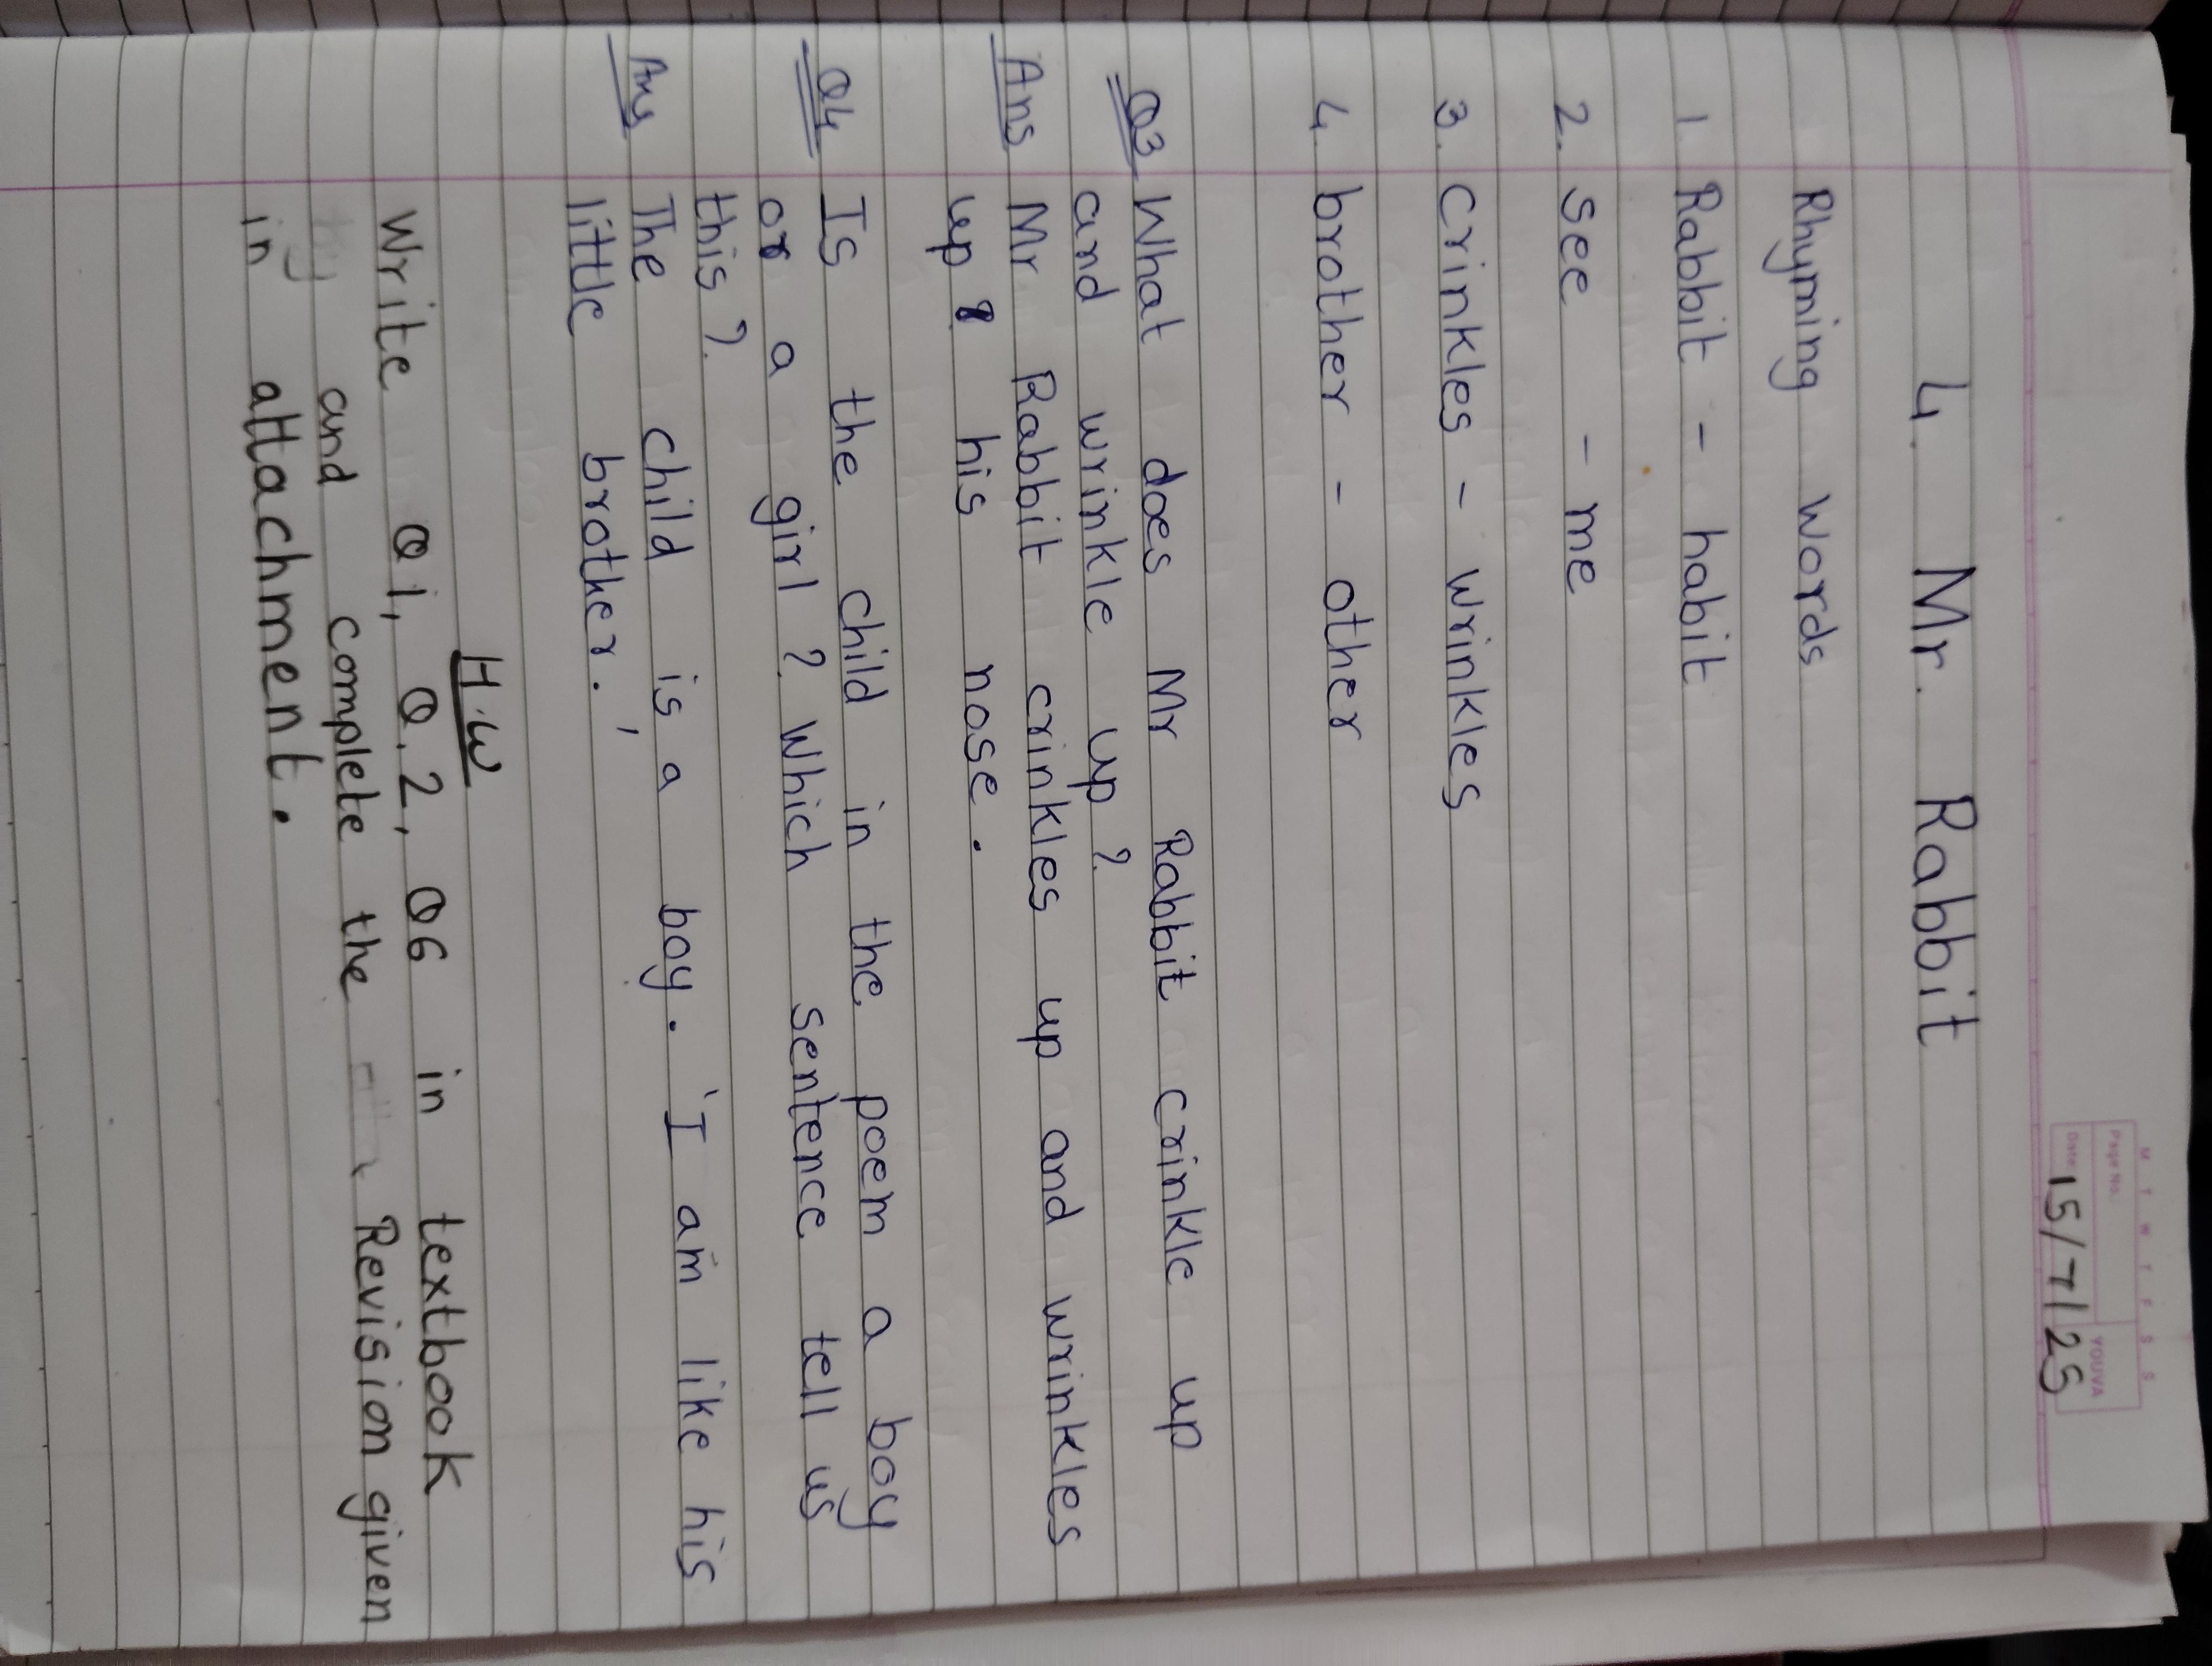 M T W T F S S
Page No.:
Date: 15/7/25
YOUVA
4. Mr. Rabbit
Rhyming words
1. Rabbit - habit
2. see - me
3. crinkles - wrinkles
4. brother - other
Q3 What does Mr Rabbit crinkle up
and wrinkle up?
Ans Mr Rabbit crinkles up and wrinkles
up his nose.
Q4 Is the child in the poem a boy
or a girl? Which sentence tell us
this?
Ans The child is a boy. 'I am like his
little brother.'
H.W
Write Q1, Q.2, Q6 in textbook
and complete the Revision given
in attachment.